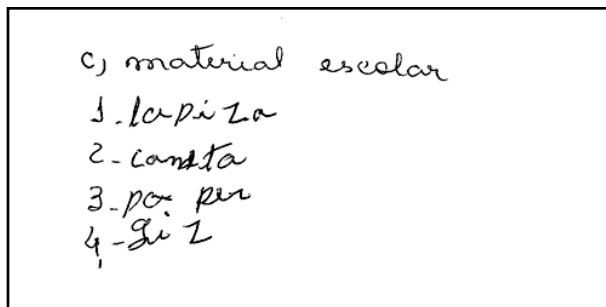 c) material escolar
1-lapiza
2-caneta
3-pa per
4-giz